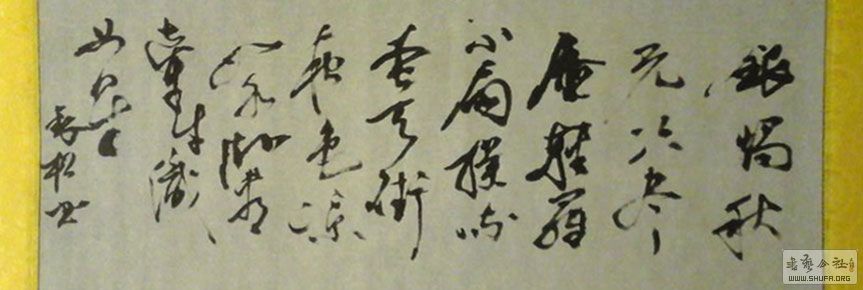 銀燭秋
光冷画
屏軽羅
小扇撲流
螢天街
夜色涼
如水卧看
牽牛織
女星
松书
书藝公社
WWW.SHUFA.ORG